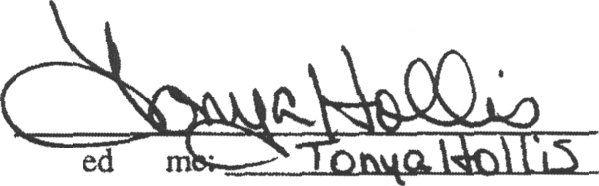 Tonya Hollis
ed me: Tonya Hollis